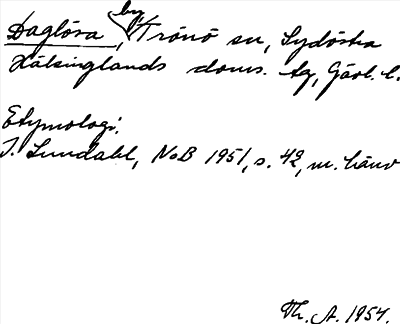 Daglösa, by, Trönö sn, Sydöstra
Hälsinglands doms. tg, Gävl. l.
Etymologi.
I. Lundahl, NoB 1951, s. 42, m. hänv
Th. A. 1954.